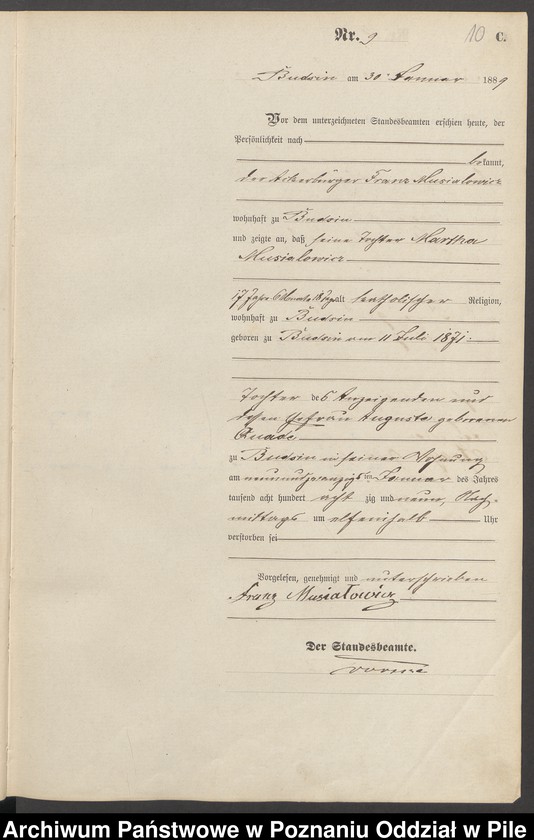 Nr. 9 10 C.
Budsin am 30. Januar 1889
Vor dem unterzeichneten Standesbeamten erschien heute, der
Persönlichkeit nach
bekannt,
der Ackerbürger Franz Musialowicz
wohnhaft zu Budsin
und zeigte an, daß seine Tochter Martha
Musialowicz
17 Jahre 6 Monate 18 Tage alt katholischer Religion,
wohnhaft zu Budsin
geboren zu Budsin am 11 Juli 1871
Tochter des Anzeigenden und
dessen Ehefrau Auguste geborenen
Quade
zu Budsin in seiner Wohnung
am neunundzwanzigsten Januar des Jahres
tausend acht hundert achtzig und neun, Nach-
mittags um elfeinhalb Uhr
verstorben sei
Vorgelesen, genehmigt und unterschrieben
Franz Musiałowicz
Der Standesbeamte.
Archiwum Państwowe w Poznaniu Oddział w Pile